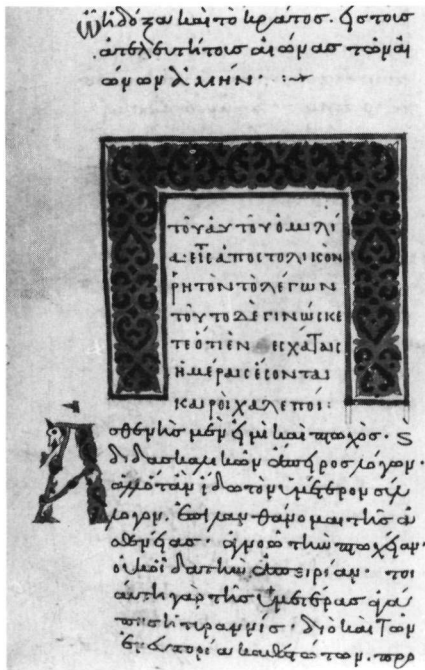 ᾧ ἡ δόξα καὶ τὸ κράτος. εἰς τοὺς
ἀτελευτήτοις αἰῶνας τῶν αἰ
ώνων ἀμήν·
τοῦ αὐτοῦ ὁμιλί
α· εἰς ἀποστολικὸν
ῥητὸν τὸ λέγων
τοῦτο δὲ γινώσκε
τε ὅτι ἐν ἐσχάταις
ἡμέραις ἔσονται
καιροὶ χαλεποί:
Ἀσθενὴς μὲν εἰμὶ καὶ πτωχὸς· ϗ
διδασκαλικῶν ἄπειρος λόγων·
ἀλλ' ὅταν ἴδω τὸν ὑμέτερον σύλ
λογον. ἐπιλανθάνομαι τῆς ἀ
σθενείας· ἀγνοῶ τὴν πτωχείαν·
οὐκ οἶδα τὴν ἀπειρίαν· τοι
αύτη γὰρ τῆς ὑμετέρας ἀγά
πης ἡ τυραννίς· διὸ καὶ τῶν
ἐν εὐπορία καθεστώτων. προ